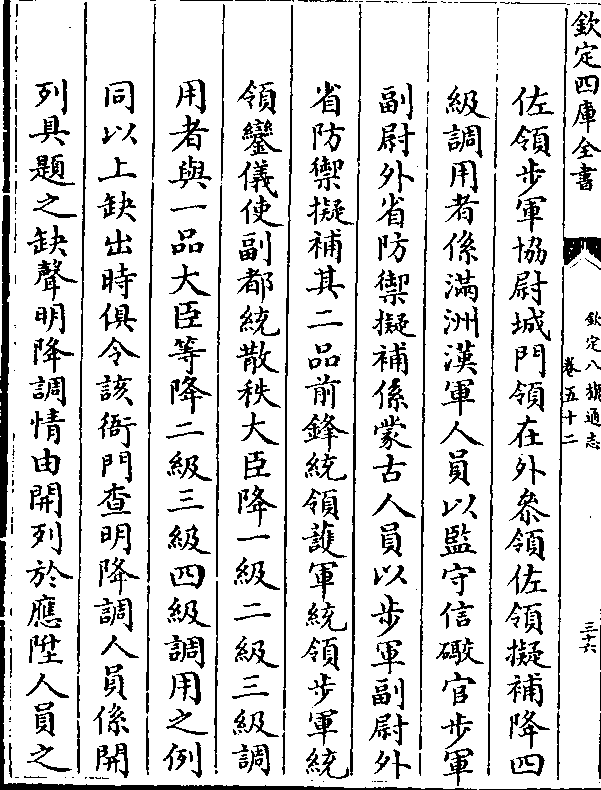 欽定四庫全書
欽定八旗通志
卷五十二
三十六
佐領步軍協尉城門領在外叅領佐領擬補降四
級調用者係滿洲漢軍人員以監守信礮官步軍
副尉外省防禦擬補係蒙古人員以步軍副尉外
省防禦擬補其二品前鋒統領護軍統領步軍統
領鑾儀使副都統散秩大臣降一級二級三級調
用者與一品大臣等降二級三級四級調用之例
同以上缺出時俱令該衙門查明降調人員係開
列具題之缺聲明降調情由開列於應陞人員之